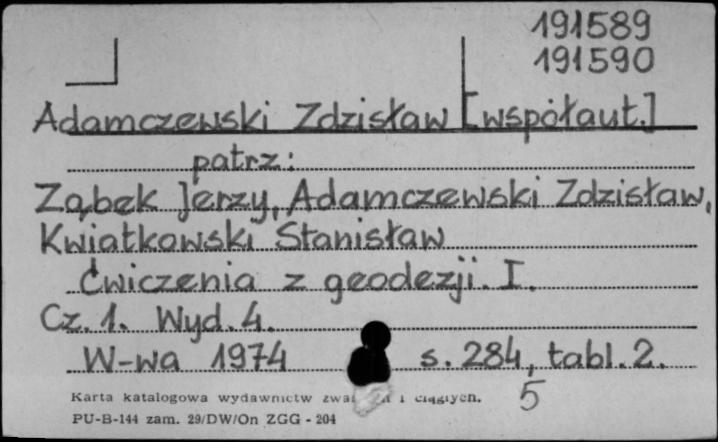 191589
191590
Adamczewski Zdzisław [współaut.]
patrz:
Ząbek Jerzy, Adamczewski Zdzisław,
Kwiatkowski Stanisław
Ćwiczenia z geodezji. I.
Cz. 1. Wyd. 4.
W-wa 1974 s. 284, tabl. 2.
Karta katalogowa wydawnictw i ciągłych. 5
PU-B-144 zam. 29/DW/On ZGG - 204